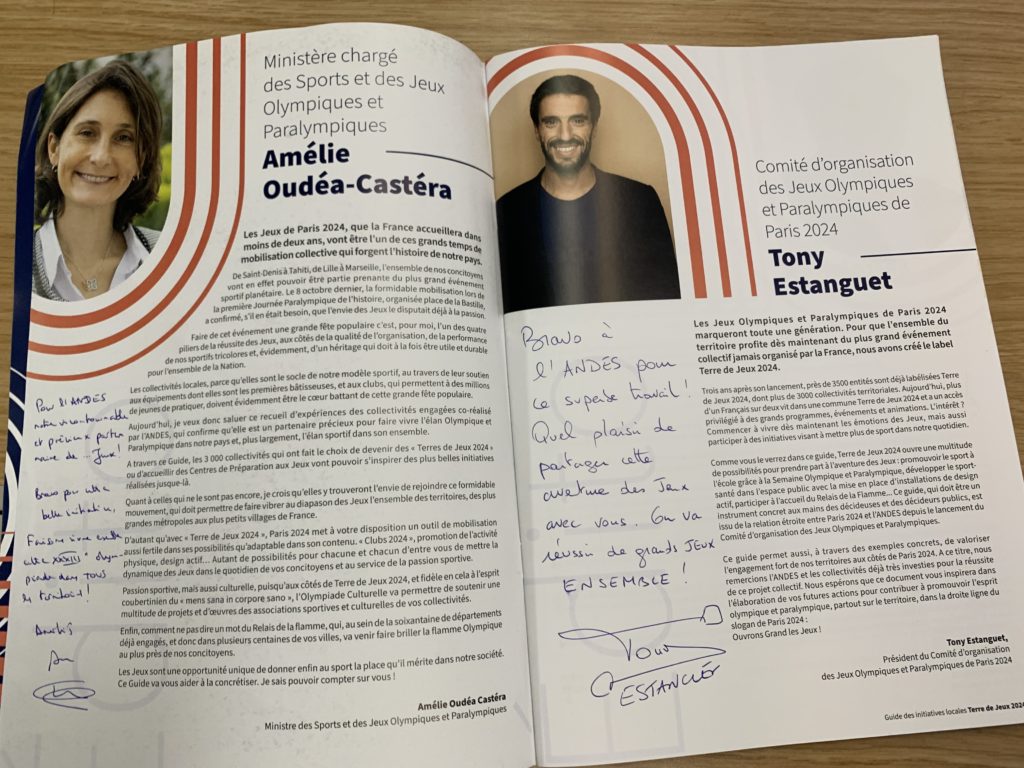 Ministère chargé
des Sports et des Jeux
Olympiques et
Paralympiques
Amélie
Oudéa-Castéra
Les Jeux de Paris 2024, que la France accueillera dans
moins de deux ans, vont être l'un de ces grands temps de
mobilisation collective qui forgent l'histoire de notre pays.
De Saint-Denis à Tahiti, de Lille à Marseille, l'ensemble de nos concitoyens
vont en effet pouvoir être partie prenante du plus grand événement
sportif planétaire. Le 8 octobre dernier, la formidable mobilisation lors de
la première Journée Paralympique de l'histoire, organisée place de la Bastille,
a confirmé, s'il en était besoin, que l'envie des Jeux le disputait déjà à la passion.
Faire de cet événement une grande fête populaire c'est, pour moi, l'un des quatre
piliers de la réussite des Jeux, aux côtés de la qualité de l'organisation, de la performance
de nos sportifs tricolores et, évidemment, d'un héritage qui doit à la fois être utile et durable
pour l'ensemble de la Nation.
Les collectivités locales, parce qu'elles sont le socle de notre modèle sportif, au travers de leur soutien
aux équipements dont elles sont les premières bâtisseuses, et aux clubs, qui permettent à des millions
de jeunes de pratiquer, doivent évidemment être le cœur battant de cette grande fête populaire.
Aujourd'hui, je veux donc saluer ce recueil d'expériences des collectivités engagées co-réalisé
par l'ANDES, qui confirme qu'elle est un partenaire précieux pour faire vivre l'élan Olympique et
Paralympique dans notre pays et, plus largement, l'élan sportif dans son ensemble.
A travers ce Guide, les 3 000 collectivités qui ont fait le choix de devenir des « Terres de Jeux 2024 »
ou d'accueillir des Centres de Préparation aux Jeux vont pouvoir s'inspirer des plus belles initiatives
réalisées jusque-là.
Quant à celles qui ne le sont pas encore, je crois qu'elles y trouveront l'envie de rejoindre ce formidable
mouvement, qui doit permettre de faire vibrer au diapason des Jeux l'ensemble des territoires, des plus
grandes métropoles aux plus petits villages de France.
D'autant qu'avec « Terre de Jeux 2024 », Paris 2024 met à votre disposition un outil de mobilisation
aussi fertile dans ses possibilités qu'adaptable dans son contenu. « Clubs 2024 », promotion de l'activité
physique, design actif... Autant de possibilités pour chacune et chacun d'entre vous de mettre la
dynamique des Jeux dans le quotidien de vos concitoyens et au service de la passion sportive.
Passion sportive, mais aussi culturelle, puisqu'aux côtés de Terre de Jeux 2024, et fidèle en cela à l'esprit
coubertinien du « mens sana in corpore sano », l'Olympiade Culturelle va permettre de soutenir une
multitude de projets et d'œuvres des associations sportives et culturelles de vos collectivités.
Enfin, comment ne pas dire un mot du Relais de la flamme, qui, au sein de la soixantaine de départements
déjà engagés, et donc dans plusieurs centaines de vos villes, va venir faire briller la flamme Olympique
au plus près de nos concitoyens.
Les Jeux sont une opportunité unique de donner enfin au sport la place qu'il mérite dans notre société.
Ce Guide va vous aider à la concrétiser. Je sais pouvoir compter sur vous !
Amélie Oudéa Castéra
Ministre des Sports et des Jeux Olympiques et Paralympiques
Pour l'ANDES
et précieux parte
naire de ... Jeux !
Bravo pour cette
belle initiative,
Comité d'organisation
des Jeux Olympiques
et Paralympiques de
Paris 2024
Tony
Estanguet
Les Jeux Olympiques et Paralympiques de Paris 2024
marqueront toute une génération. Pour que l'ensemble du
territoire profite dès maintenant du plus grand événement
collectif jamais organisé par la France, nous avons créé le label
Terre de Jeux 2024.
Trois ans après son lancement, près de 3500 entités sont déjà labélisées Terre
de Jeux 2024, dont plus de 3000 collectivités territoriales. Aujourd'hui, plus
d'un Français sur deux vit dans une commune Terre de Jeux 2024 et a un accès
privilégié à des grands programmes, événements et animations. L'intérêt ?
Commencer à vivre dès maintenant les émotions des Jeux, mais aussi
participer à des initiatives visant à mettre plus de sport dans notre quotidien.
Comme vous le verrez dans ce guide, Terre de Jeux 2024 ouvre une multitude
de possibilités pour prendre part à l'aventure des Jeux : promouvoir le sport à
l'école grâce à la Semaine Olympique et Paralympique, développer le sport-
santé dans l'espace public avec la mise en place d'installations de design
actif, participer à l'accueil du Relais de la Flamme... Ce guide, qui doit être un
instrument concret aux mains des décideuses et des décideurs publics, est
issu de la relation étroite entre Paris 2024 et l'ANDES depuis le lancement du
Comité d'organisation des Jeux Olympiques et Paralympiques.
Ce guide permet aussi, à travers des exemples concrets, de valoriser
l'engagement fort de nos territoires aux côtés de Paris 2024. A ce titre, nous
remercions l'ANDES et les collectivités déjà très investies pour la réussite
de ce projet collectif. Nous espérons que ce document vous inspirera dans
l'élaboration de vos futures actions pour contribuer à promouvoir l'esprit
olympique et paralympique, partout sur le territoire, dans la droite ligne du
slogan de Paris 2024 :
Ouvrons Grand les Jeux !
Tony Estanguet,
Président du Comité d'organisation
des Jeux Olympiques et Paralympiques de Paris 2024
Bravo à
l'ANDES pour
ce superbe travail !
Quel plaisir de
partager cette
aventure des Jeux
avec vous. On va
réussir de grands JEUX
ENSEMBLE !
Tony
ESTANGUET
Guide des initiatives locales Terre de Jeux 2024